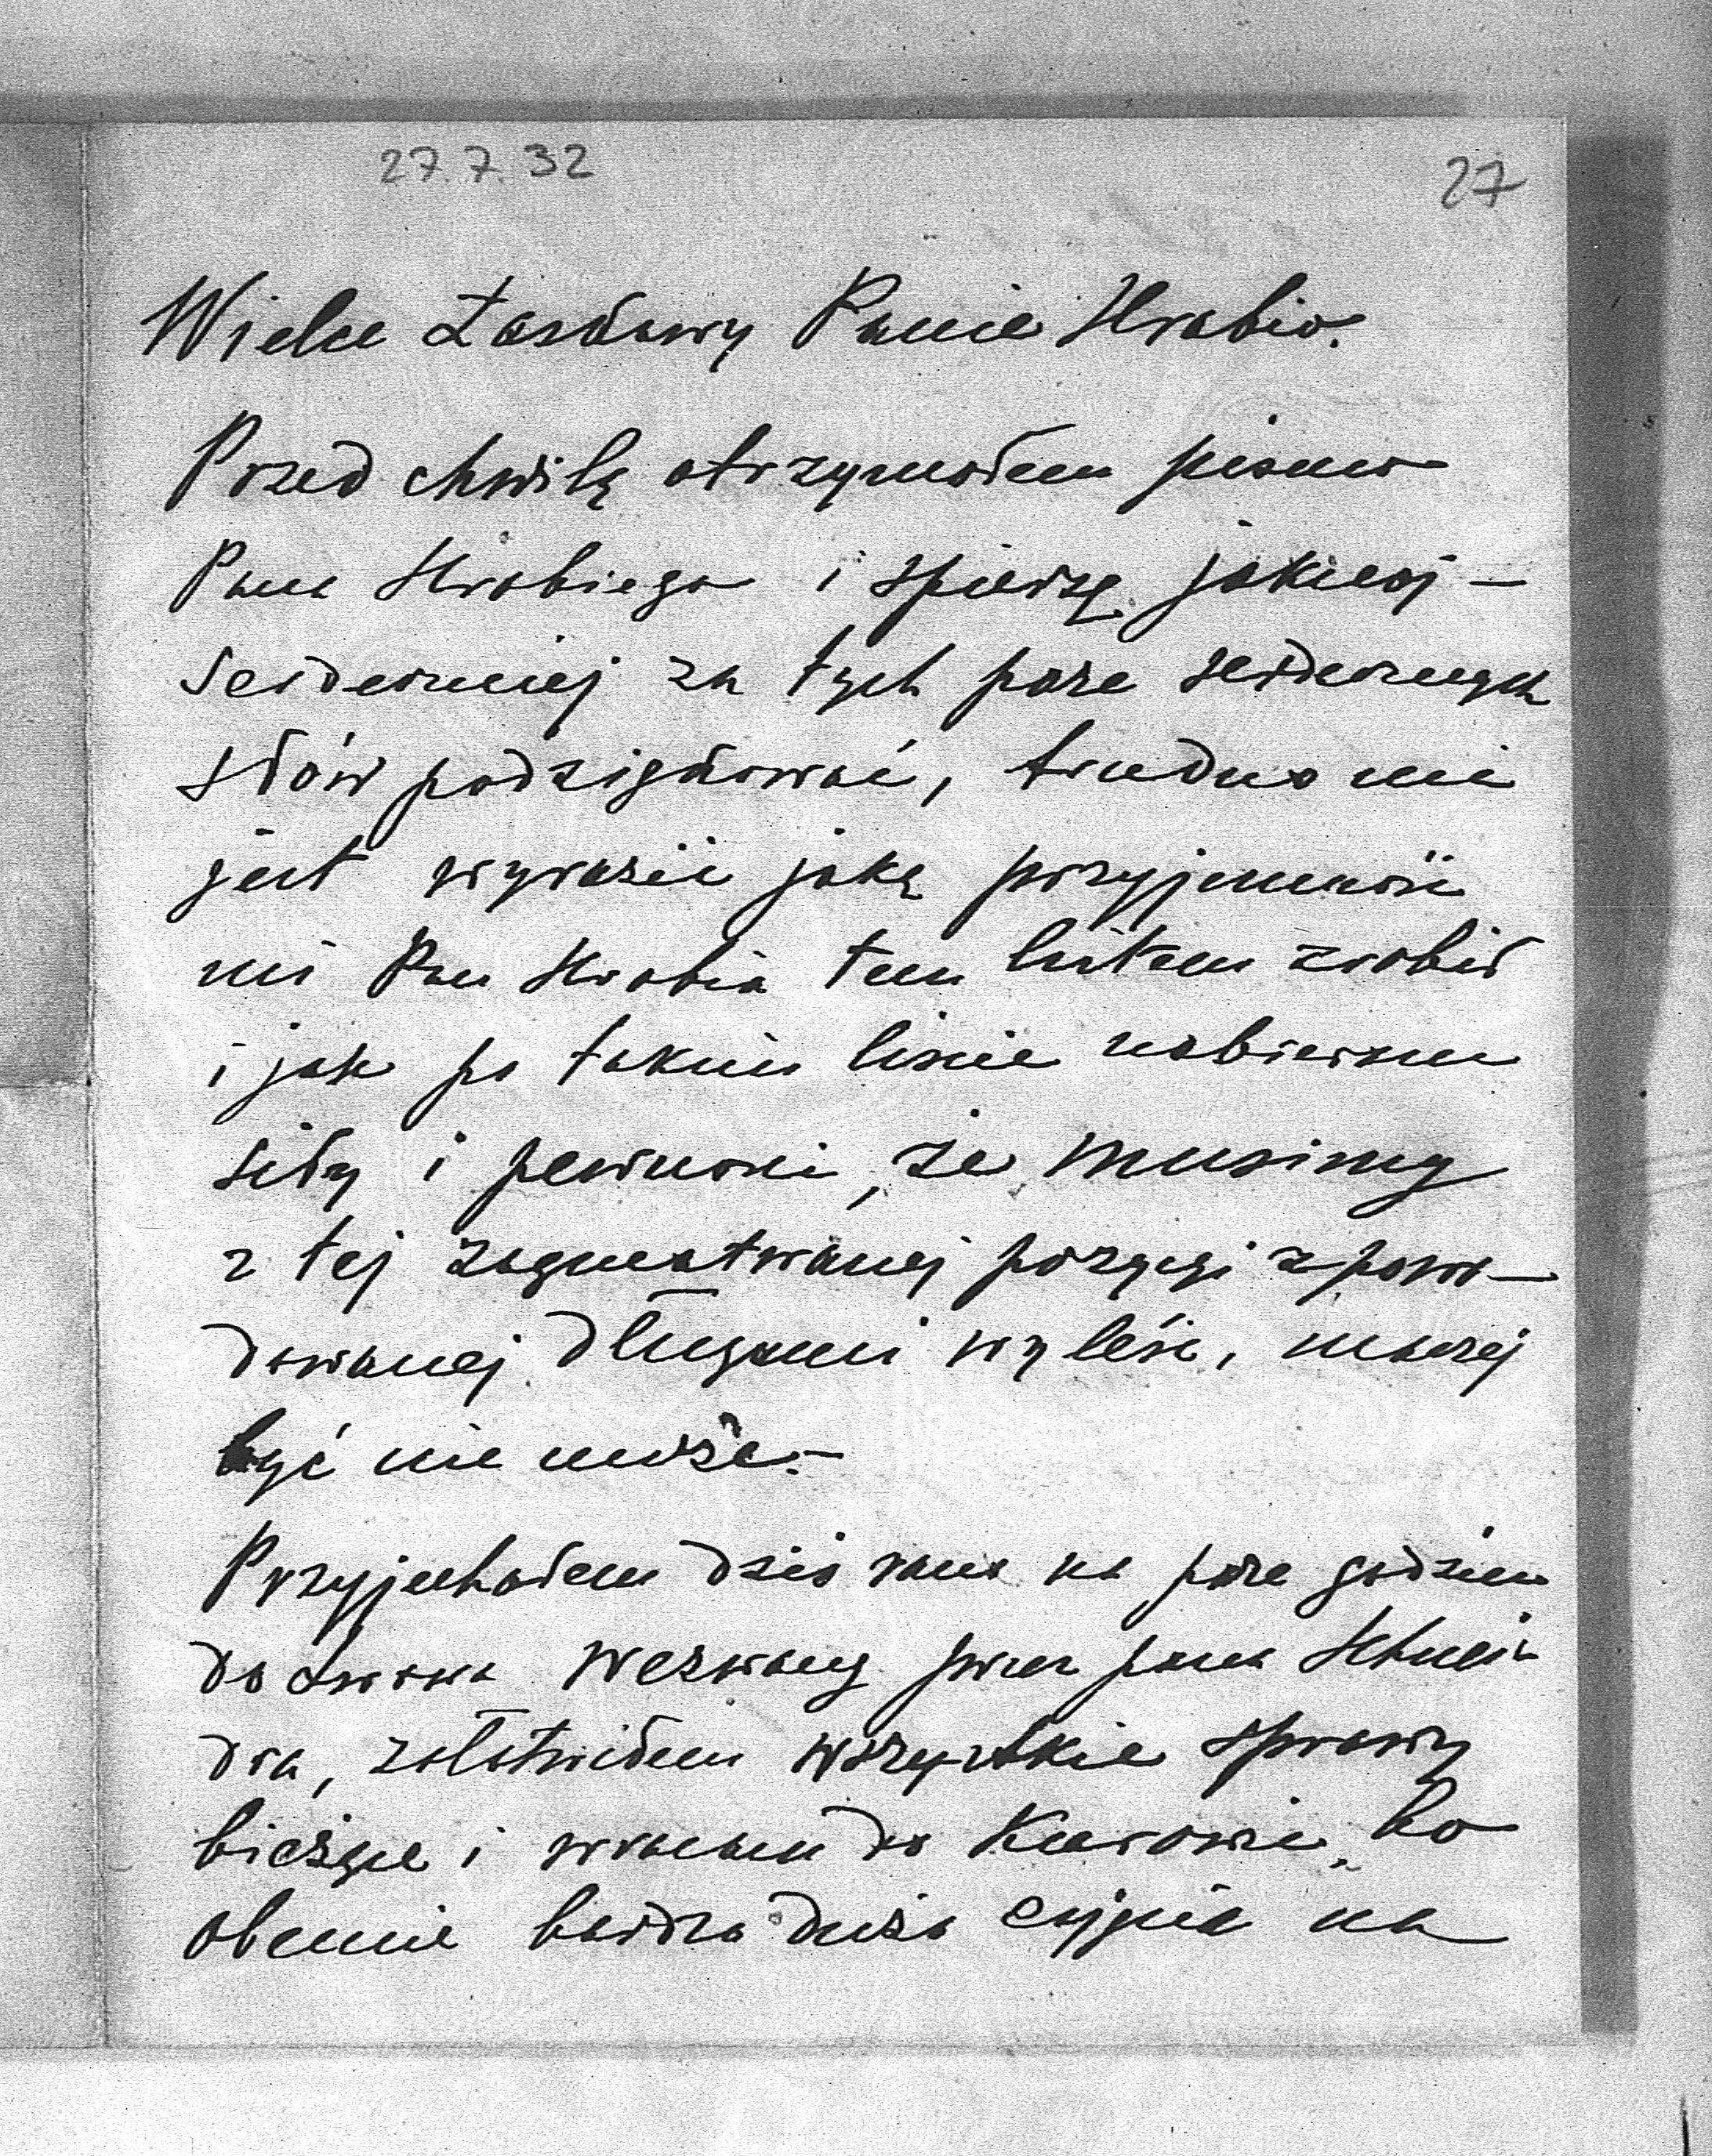 27.7.32
27
Wielce Łaskawy Panie Hrabio.
Przed chwilą otrzymałem pismo
Pana Hrabiego i spieszę jaknaj-
serdeczniej za tych parę serdecznych
słów podziękować, trudno mi
jest wyrazić jaką przyjemność
mi Pan Hrabia tem listem zrobił
i jak po takim liście nabieram
siły i pewności, że musimy
z tej zagmatwanej pozycji spowo-
dowanej długami wyleść, inaczej
być nie może.-
Przyjechałem dziś rano na parę godzin
do Lwowa wezwany przez pana Schnei
dra, załatwiłem wszystkie sprawy
bieżące i wracam do Kurowic, bo
obecnie bardzo dużo zajęcia na